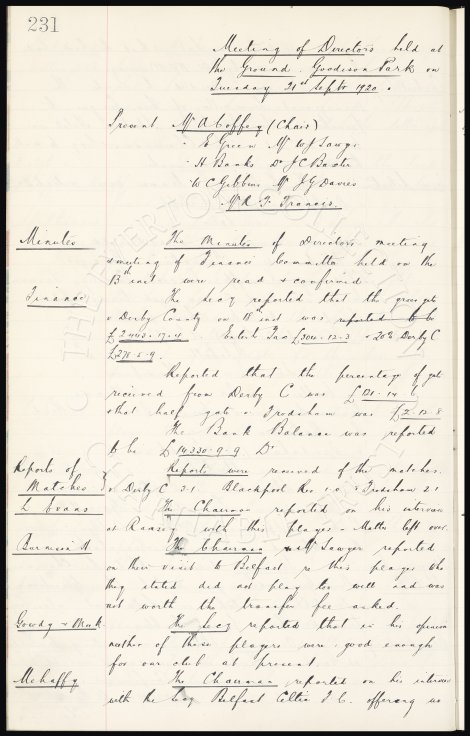 231
Meeting of Directors held at
the Ground. Goodison Park on
Tuesday 21st Septr 1920.
Present. Mr A Coffey (Chair)
" E Green Mr W J Sawyer
" H Banks Dr J C Baxter
" W C Gibbins Mr J G Davies
Mr R. F Francis.
Minutes The Minutes of Directors meeting
& meeting of Finance Committee held on the
13th inst were read & confirmed.
Finance The Secy reported that the gross gate
v Derby County on 13 inst was reported to be
£2443-17-4. Entert Tax £304-12-3 & 20% Derby C
£278-5-9.
Reported that the percentage of gate
received from Derby C was £121-14-6
& that half gate v Frodsham was £2-12-8
The Bank Balance was reported
to be £14330-9-9 Dr
Reports of Matches Reports were received of the matches.
v Derby C 3-1 Blackpool Res 1-0 & Frodsham 2-1
L Evans The Chairman reported on his interview
at Ramsey with this player - Matter left over.
The Chairman & Mr Sawyer reported
on their visit to Belfast re this player who
they stated did not play too well and was
not worth the transfer fee asked.
Gowdy & Meek The Secy reported that in his opinion
neither of these players were good enough
for our club at present.
Mehaffy The Chairman reported on his interview
with the Secy Belfast Celtic F.C. offering us
THE EVERTON COLLECTION